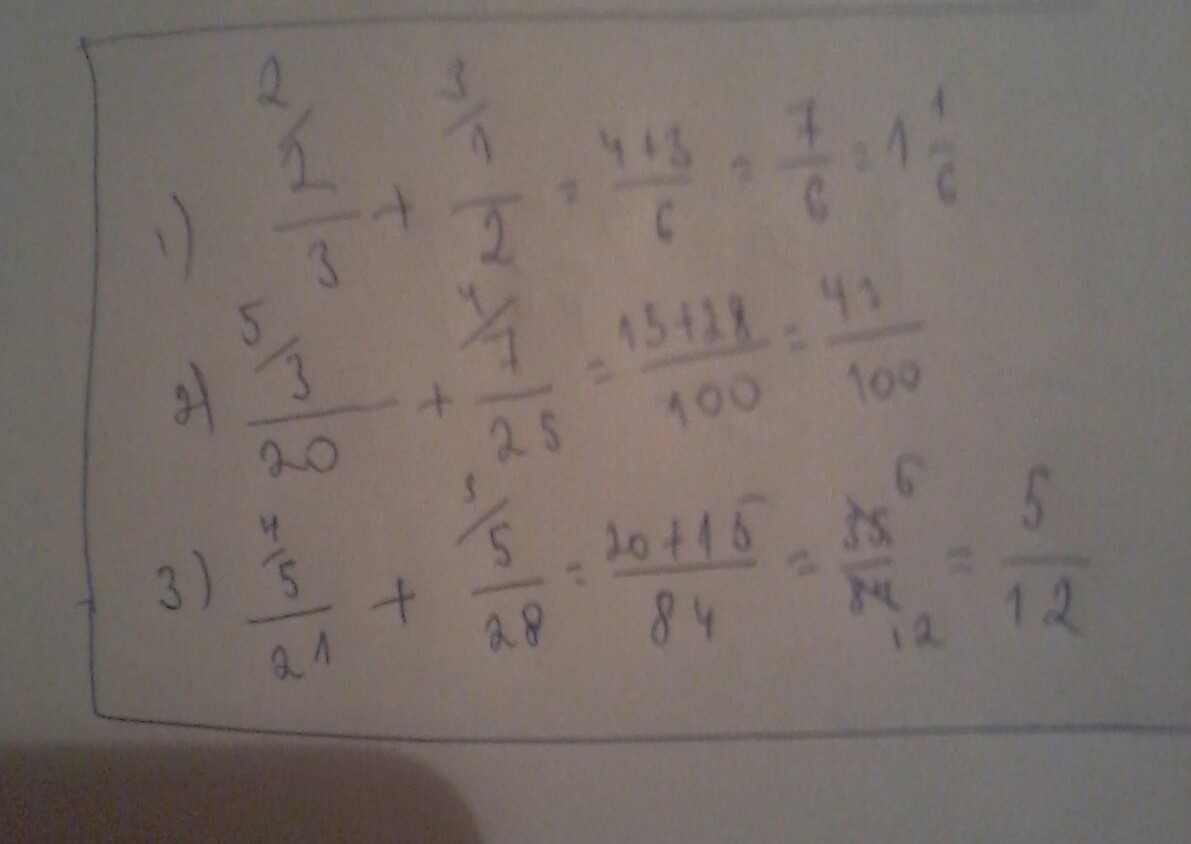 1) ²/2/3 + ³/1/2 = 4+3/6 = 7/6 = 1 1/6
2) ⁵/3/20 + ⁴/7/25 = 15+28/100 = 43/100
3) ⁴/5/21 + ³/5/28 = 20+15/84 = 35/84 = 5/12